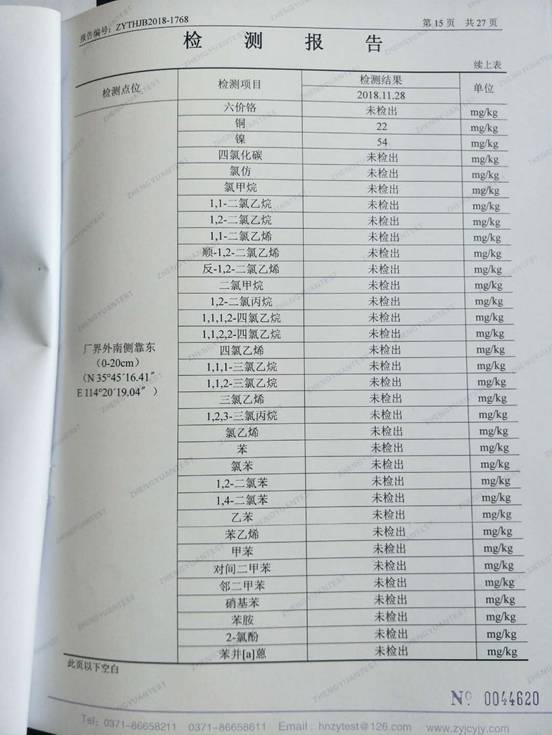 报告编号: ZYTHJB2018-1768
第 15 页 共 27 页
检 测 报 告
续上表
检测点位 检测项目 检测结果 单位
2018.11.28
六价铬 未检出 mg/kg
铜 22 mg/kg
镍 54 mg/kg
四氯化碳 未检出 mg/kg
氯仿 未检出 mg/kg
氯甲烷 未检出 mg/kg
1,1-二氯乙烷 未检出 mg/kg
1,2-二氯乙烷 未检出 mg/kg
1,1-二氯乙烯 未检出 mg/kg
顺-1,2-二氯乙烯 未检出 mg/kg
反-1,2-二氯乙烯 未检出 mg/kg
二氯甲烷 未检出 mg/kg
1,2-二氯丙烷 未检出 mg/kg
1,1,1,2-四氯乙烷 未检出 mg/kg
1,1,2,2-四氯乙烷 未检出 mg/kg
厂界外南侧靠东
(0-20cm)
(N 35°45′16.41″
E 114°20′19.04″)
四氯乙烯 未检出 mg/kg
1,1,1-三氯乙烷 未检出 mg/kg
1,1,2-三氯乙烷 未检出 mg/kg
三氯乙烯 未检出 mg/kg
1,2,3-三氯丙烷 未检出 mg/kg
氯乙烯 未检出 mg/kg
苯 未检出 mg/kg
氯苯 未检出 mg/kg
1,2-二氯苯 未检出 mg/kg
1,4-二氯苯 未检出 mg/kg
乙苯 未检出 mg/kg
苯乙烯 未检出 mg/kg
甲苯 未检出 mg/kg
对间二甲苯 未检出 mg/kg
邻二甲苯 未检出 mg/kg
硝基苯 未检出 mg/kg
苯胺 未检出 mg/kg
2-氯酚 未检出 mg/kg
苯并[a]蒽 未检出 mg/kg
此页以下空白
№ 0044620
Tel: 0371-86658211 0371-86658611 Email: hnzytest@126.com www.zyjcyjy.com
ZHENGYUANTEST